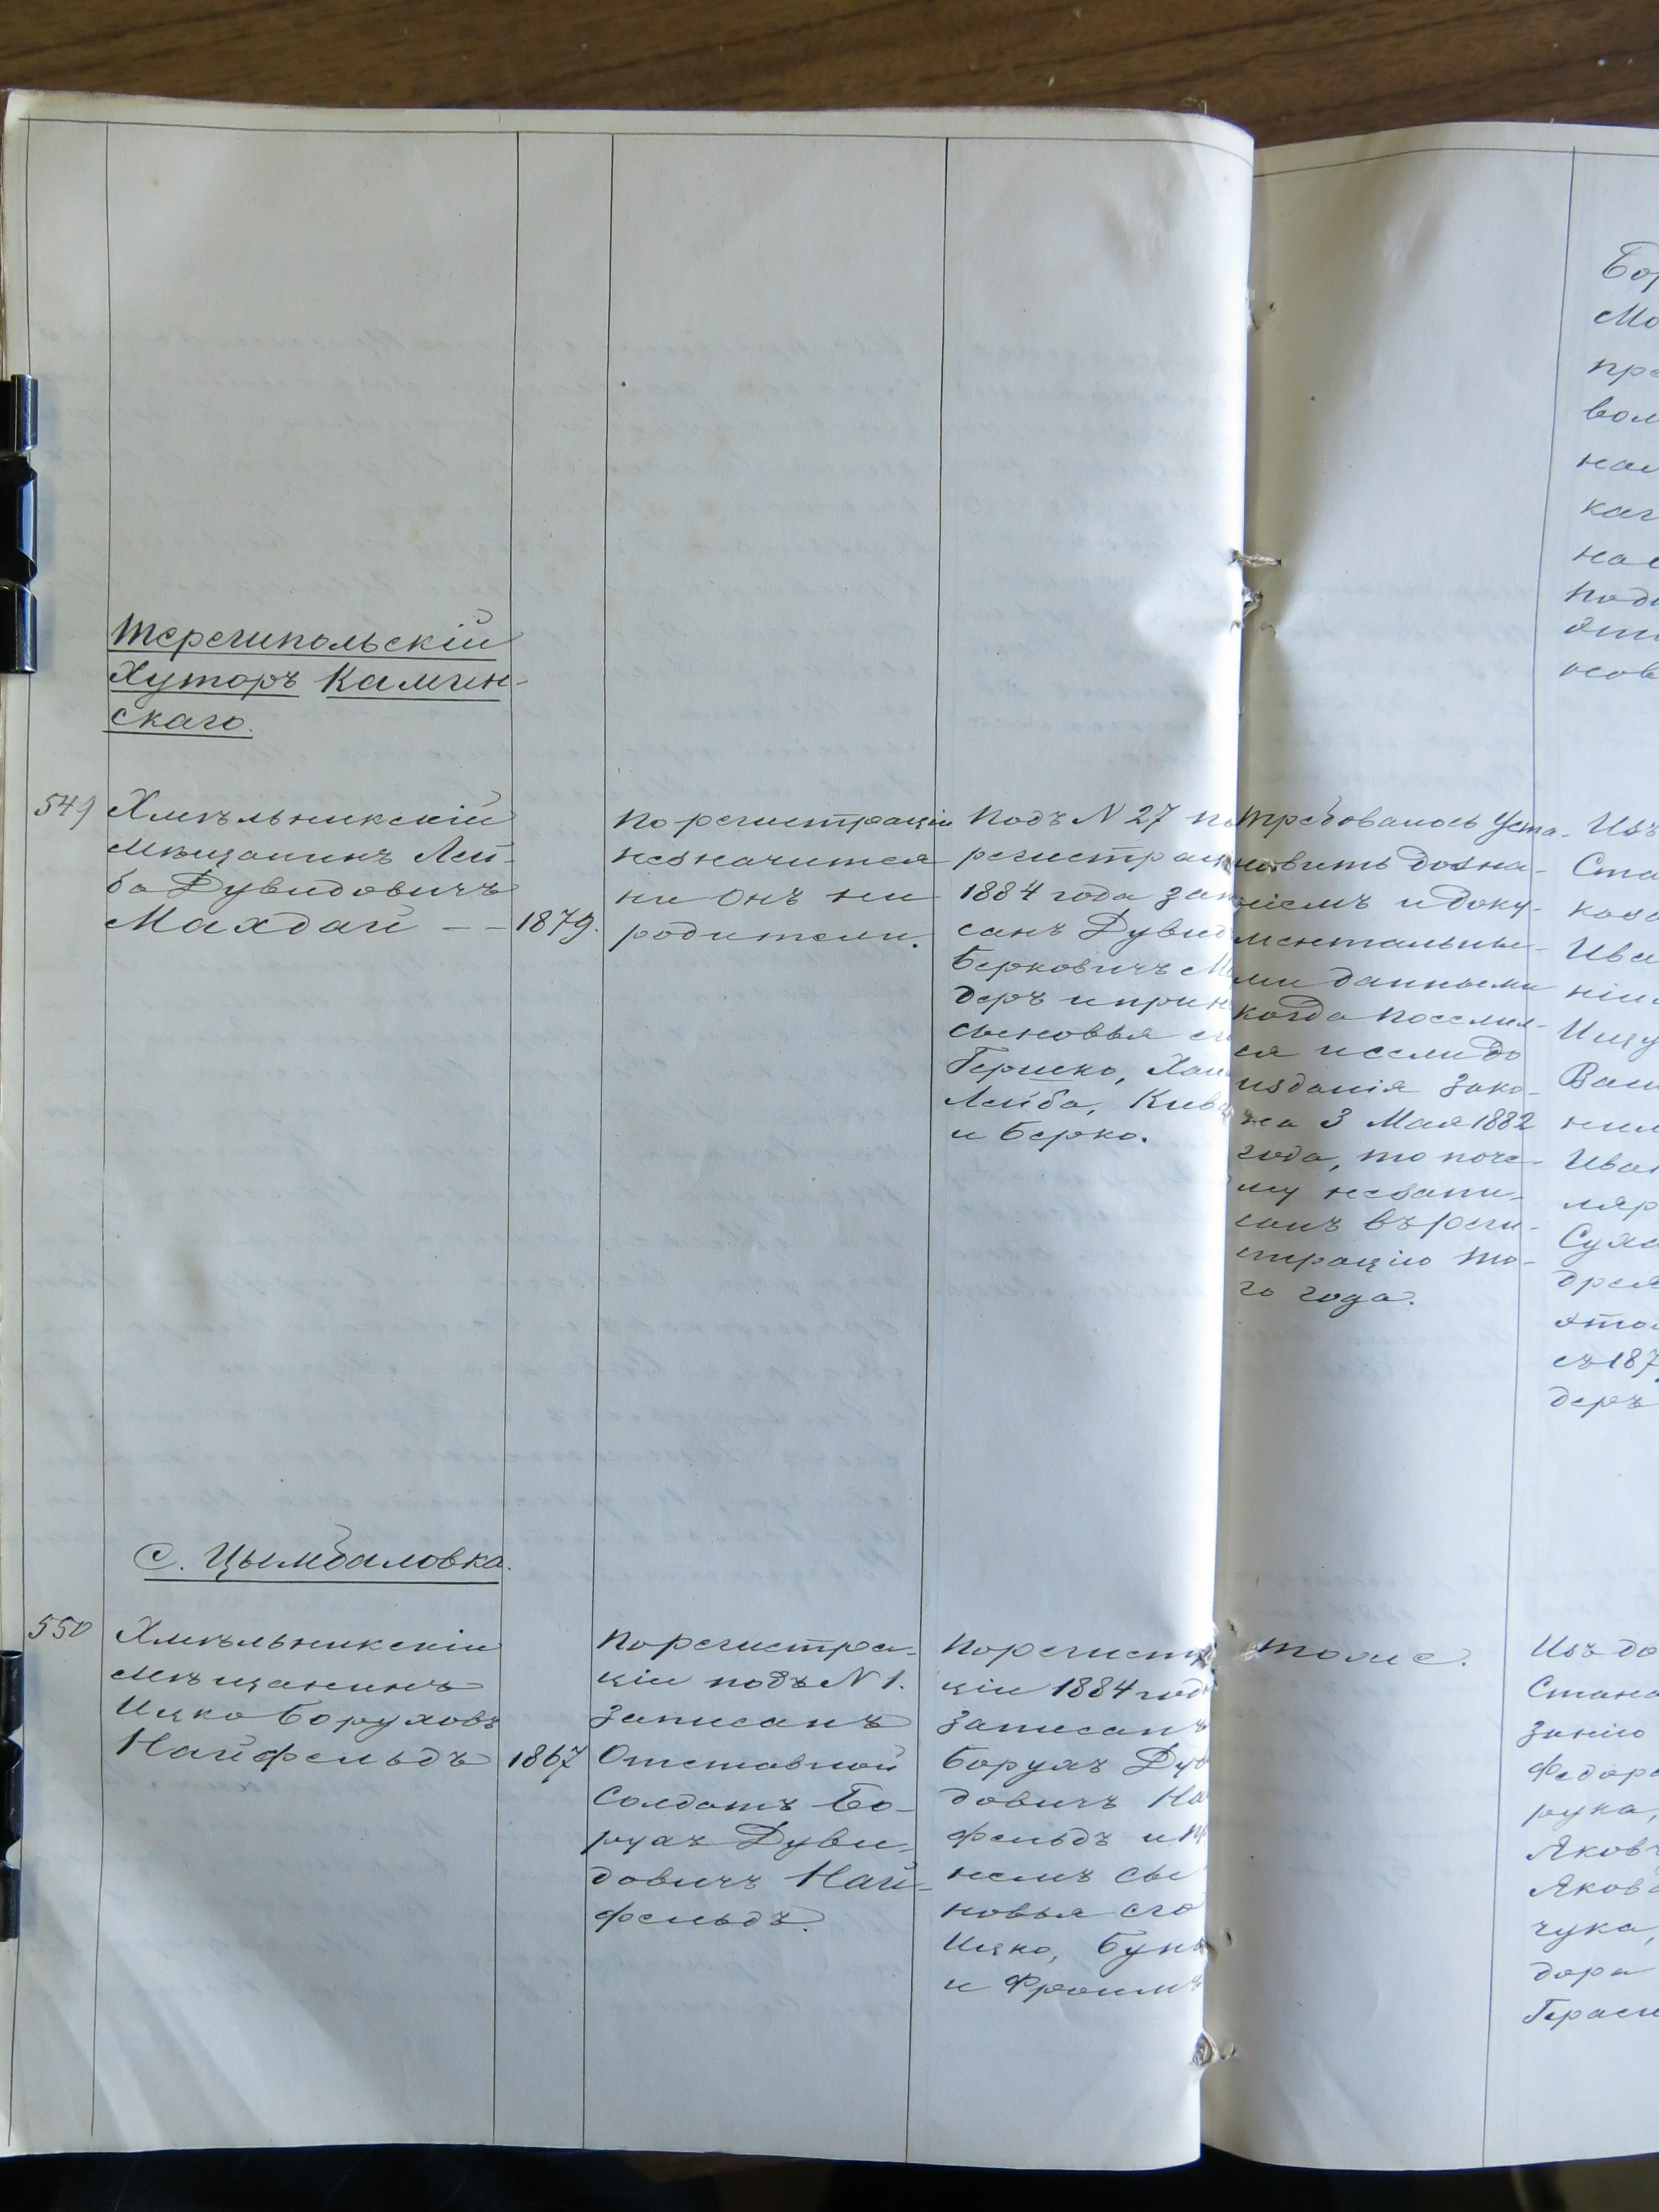 Терешпольскій
Хуторъ Камин-
скаго.
549
Хмѣльникскій
мѣщанинъ Лей-
ба Дувидовичъ
Махдай — — 1879.
По регистраціи
незначится
ни онъ ни
родители.
Подъ N 27 по
регистрац
1884 года зап
санъ Дувид
Берковичъ М
деръ и при н
сыновья ег
Гершко, Хаи
Лейба, Кива
и Берко.
Требовалось уста-
новить дозна-
ніемъ и доку-
ментальны-
ми данными
когда поселил-
ся и если до
изданія зако-
на 3 Мая 1882
года, то поче-
му незапи-
санъ въ реги-
страцію то-
го года.
Бор
Мо
пре
вол
нап
кач
на
поди
отп
нов
Изъ
Ста
каза
Ива
нія
Ищу
Вас
ним
Иван
ляр
Суха
дрея
что
съ 187
деръ
с. Цымбаловка.
550
Хмѣльникскій
мѣщанинъ
Ицко Боруховъ
Найфельдъ 1867
По регистра-
ціи подъ N 1.
записанъ
Отставной
Солдатъ Бо-
рухъ Дуви-
довичъ Най-
фельдъ.
По регистр
ціи 1884 год
записанъ
Борухъ Дув
довичъ На
фельдъ и п
немъ сы
новья его
Ицко, Бунь
и Фроимъ
Тоже.
Изъ до
Стана
занію
Федора
рука,
Яковъ
Якова
чука,
дора
Герас